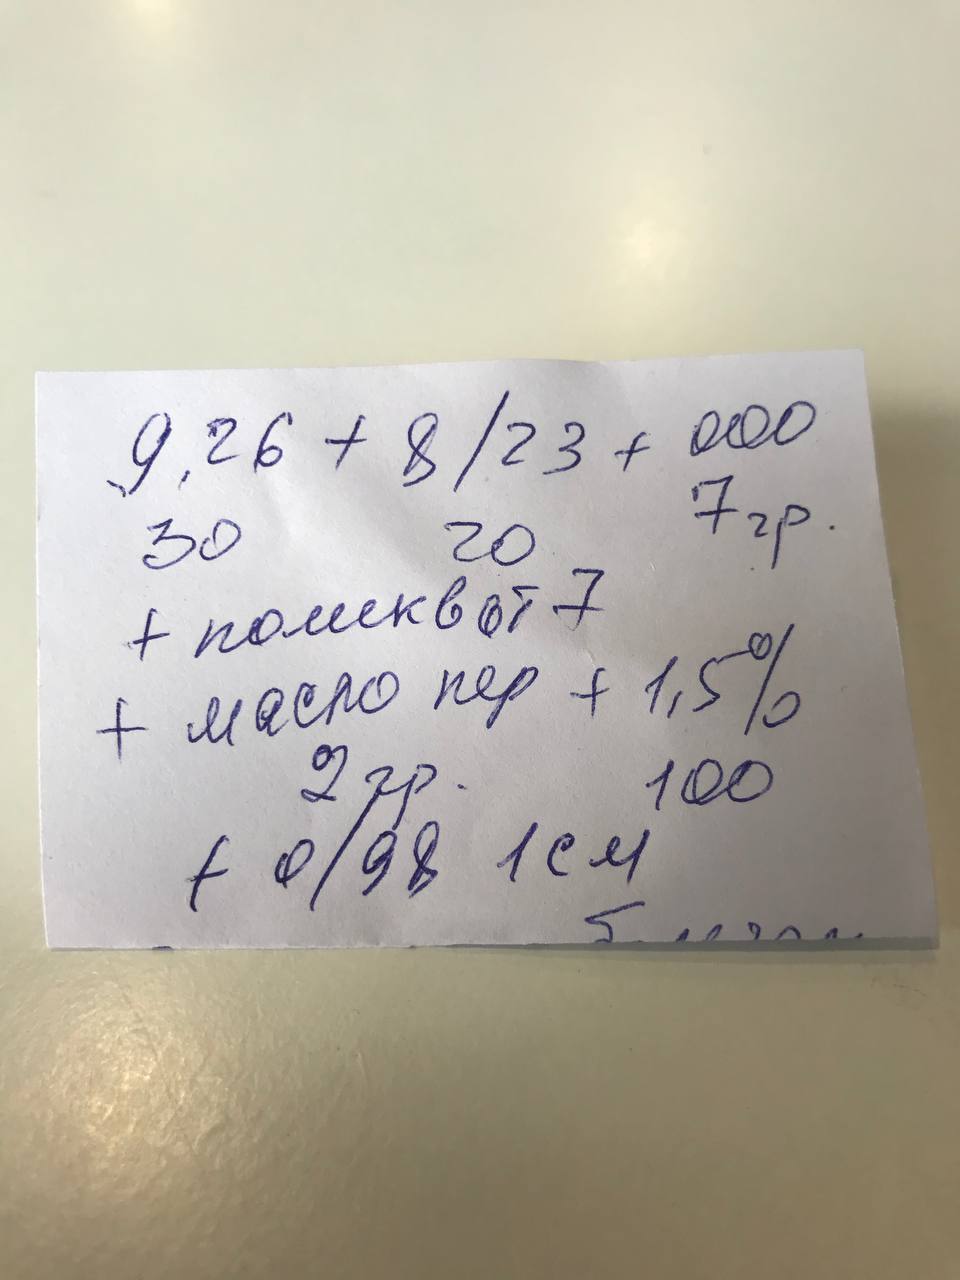 9,26 + 8/23 + 000
30 20 7гр.
+ поликват 7
+ масло пер + 1,5%
2гр. 100
+ 0/98 1см